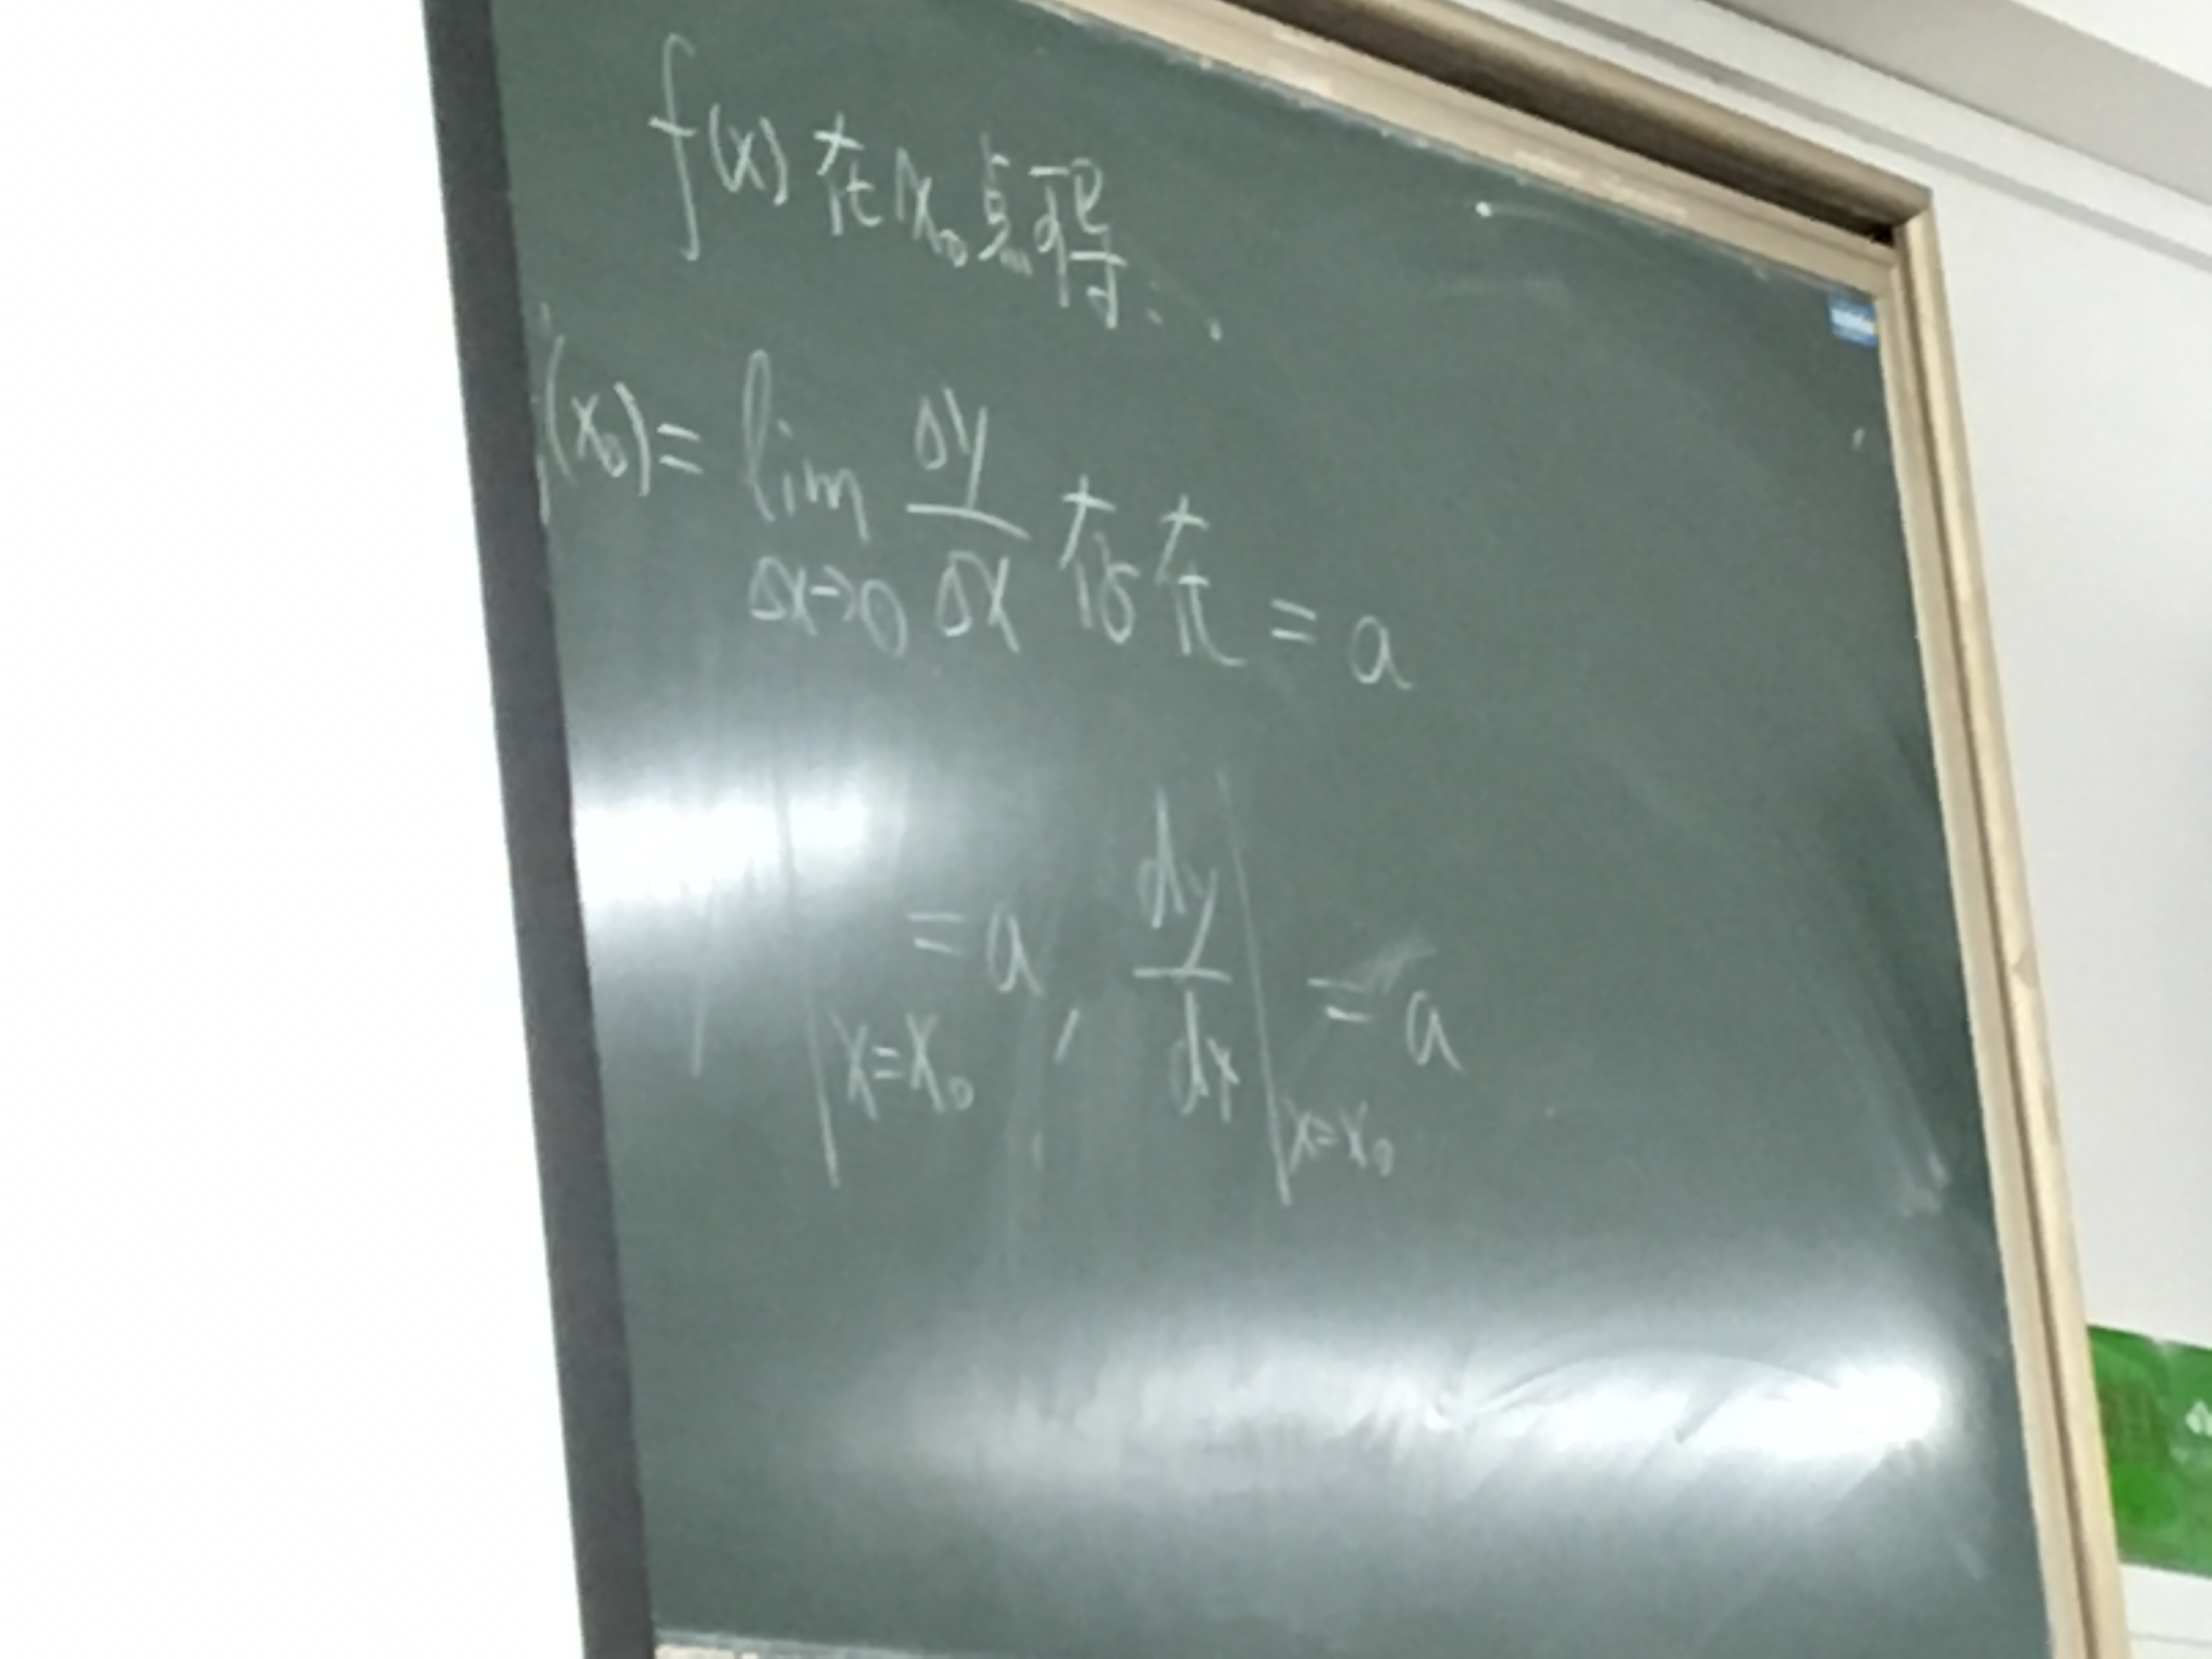 f(x)在x₀点可导...
'(x₀)= lim Δx→0 Δy/Δx 存在 = a
|x=x₀ = a, dy/dx |x=x₀ = a